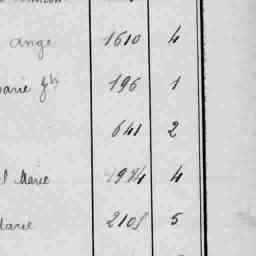 ange 1610 4
Marie jh 196 1
641 2
Marie 1984 4
Marie 2105 5